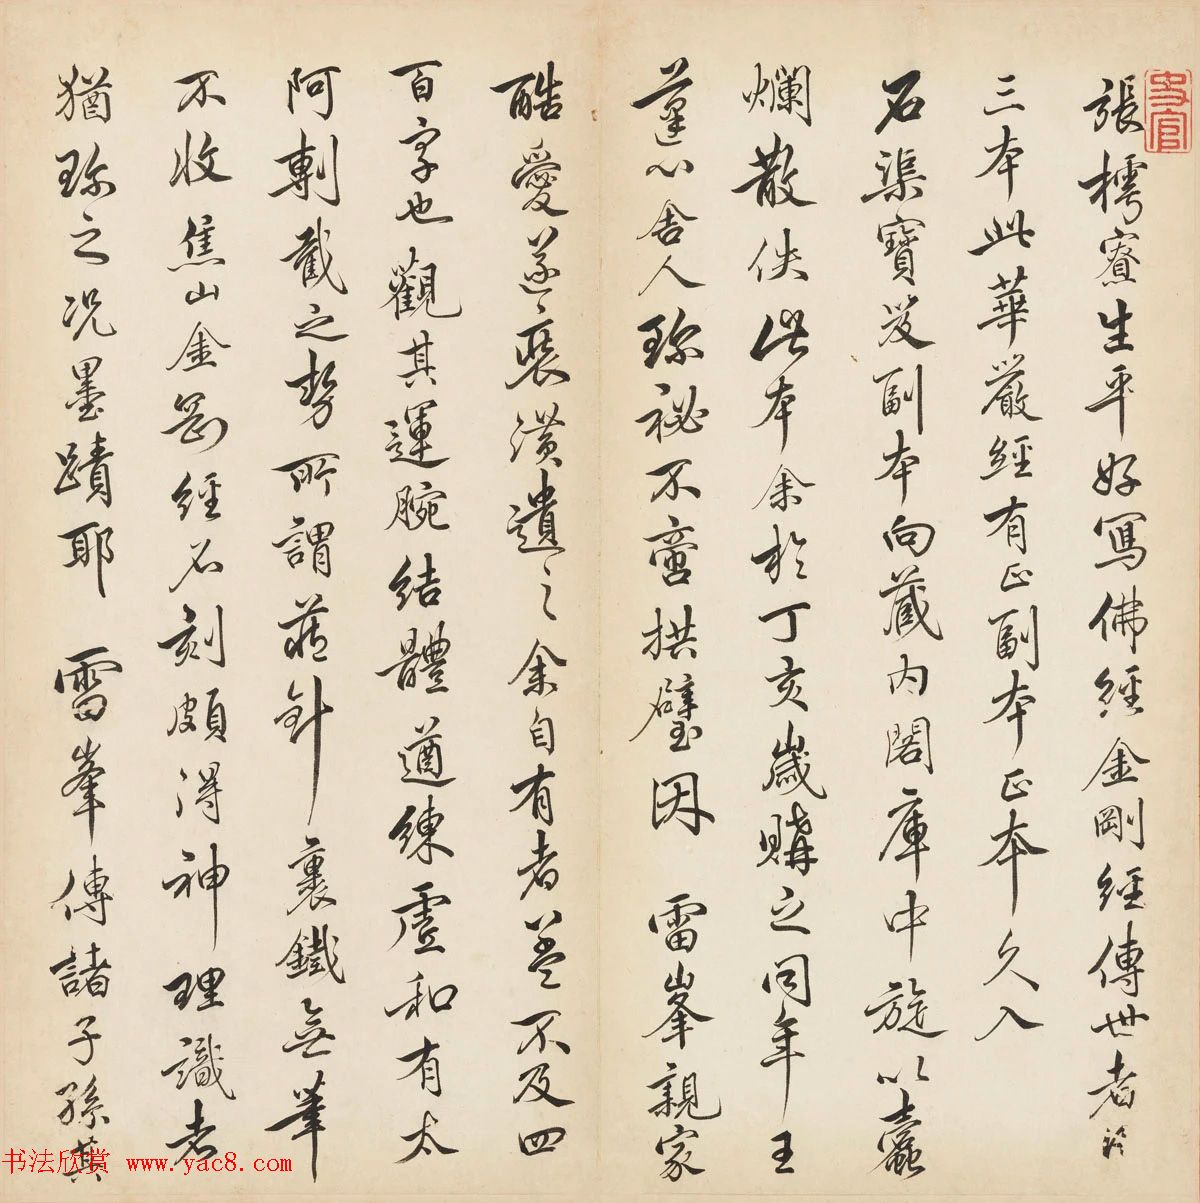 史官
張樗寮生平好寫佛經金剛經傳世者終
三本此華嚴經有正副本正本久入
石渠寶笈副本向藏內閣庫中旋以蠹
爛散佚此本余於丁亥歲購之同年王
蓬心舍人珍祕不啻拱璧因 雷峯親家
酷愛遂裝潢遺之余自有者蓋不及四
百字也觀其運腕結體遒練虛和有太
阿剸截之勢所謂藏針裹鐵無筆
不收焦山金剛經石刻頗得神理識者
猶珍之況墨蹟耶 雷峯傳諸子孫其
书法欣赏 www.yac8.com